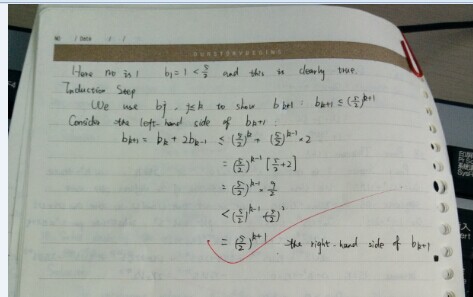 Here no is 1 b₁ = 1 < 5/2 and this is clearly true.
Induction Step
We use bj, j≤k to show bk+1: bk+1 ≤ (5/2)^k+1
Consider the left-hand side of bk+1:
bk+1 = bk + 2bk-1 ≤ (5/2)^k + (5/2)^k-1 × 2
= (5/2)^k-1 [5/2 + 2]
= (5/2)^k-1 × 9/2
< (5/2)^k-1 (5/2)^2
= (5/2)^k+1 the right-hand side of bk+1